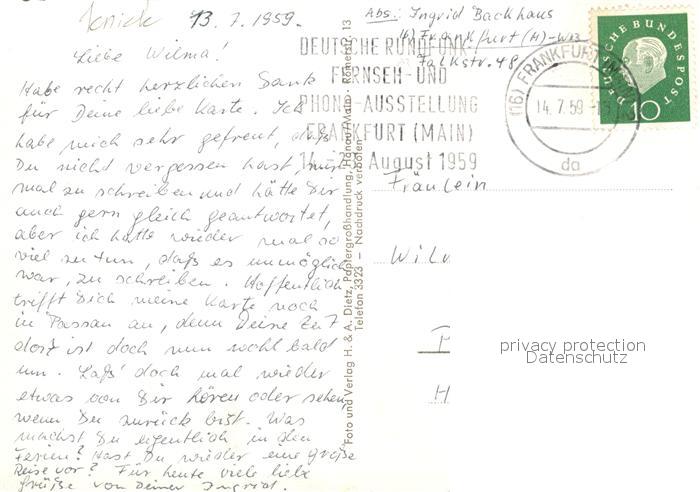 13.7.1959.
Liebe Wilma!
Habe recht herzlichen Dank
für Deine liebe Karte. Ich
habe mich sehr gefreut, daß
Du nicht vergessen hast, mir
mal zu schreiben und hätte Dir
auch gern gleich geantwortet,
aber ich hatte wieder mal so
viel zu tun, daß es unmöglich
war, zu schreiben. Hoffentlich
trifft Dich meine Karte noch
in Passau an, denn Deine Zeit
dort ist doch nun wohl bald
um. Laß' doch mal wieder
etwas von Dir hören oder sehen,
wenn Du zurück bist. Was
machst Du eigentlich in den
Ferien? Hast Du wieder eine große
Reise vor? Für heute viele liebe
Grüße von Deiner Ingrid.
Foto und Verlag H. & A. Dietz, Papiergroßhandlung, Hanau/Main · Römerstr. 13
Telefon 3323 — Nachdruck verboten
Abs: Ingrid Backhaus
(16) Frankfurt (M)-W13
Falkstr. 48
DEUTSCHE RUNDFUNK-
FERNSEH-UND
PHONO-AUSSTELLUNG
FRANKFURT (MAIN)
August 1959
(16) FRANKFURT
14.7.59
da
DEUTSCHE BUNDESPOST
10
Fräulein
Wil
H
privacy protection
Datenschutz